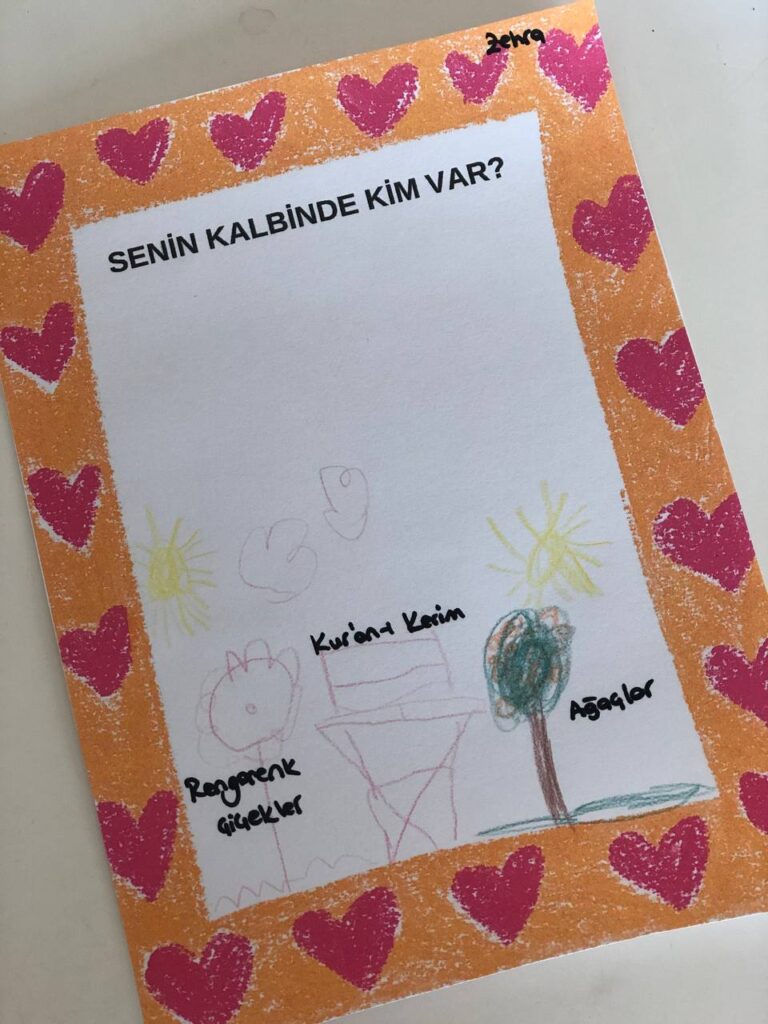 Zehra
SENİN KALBİNDE KİM VAR?
Kur'an-ı Kerim
Ağaçlar
Rengarenk
çiçekler